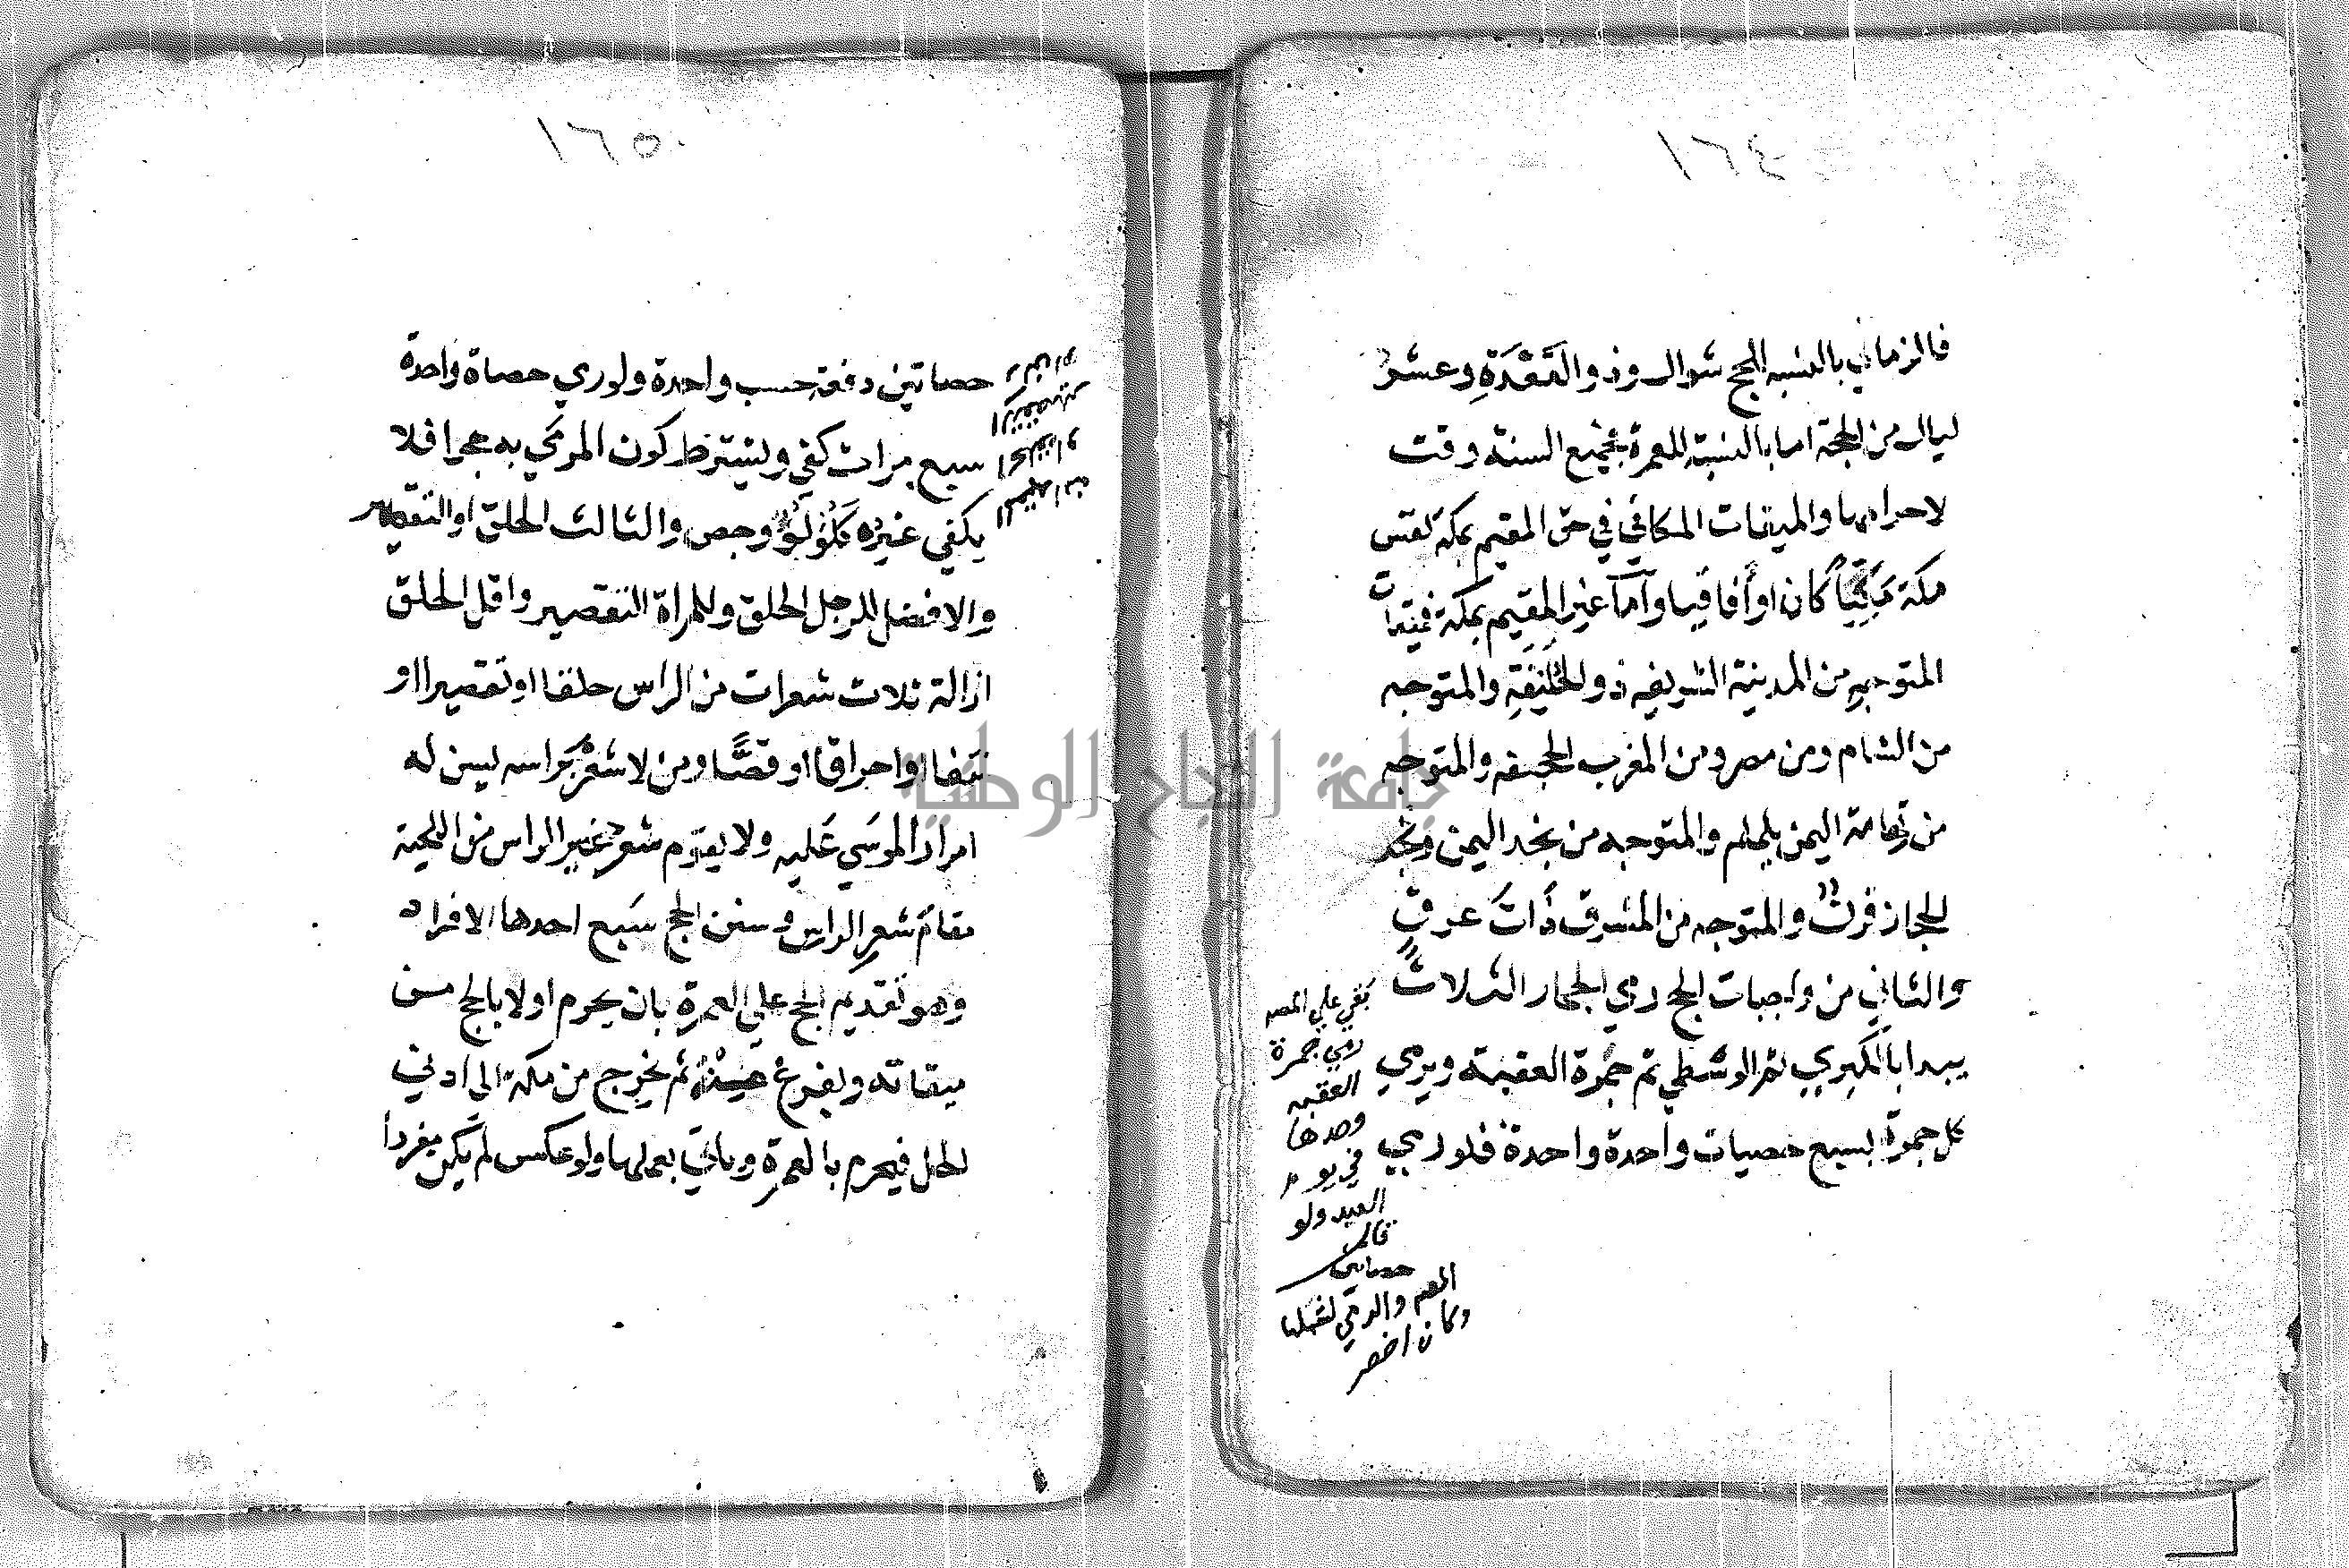 ١٦٤
فالزماني بالنسبه للحج شوال وذو القَعْدَةِ وعشرُ
ليال من الحجة اما بالنسبة للعمرة فجميع السنة وقت
لاحرامها والميقات المكاني في حق المقيم بمكة نفس
مكة مَكِّيّاً كان او أفاقيا وأما غير المقيم بمكة فميقات
المتوجه من المدينة الشريفه ذو الحُلَيْفَةِ والمتوجه
من الشام ومن مصر ومن المغرب الجحفه والمتوجه
من تهامة اليمن يلملم والمتوجه من نجد اليمن ونجد
الحجاز قرنٌ والمتوجه من المشرق ذَاتَ عرقٍ
والثاني من واجبات الحج رمي الجمار الثلاثٌ
يبدا بالكبري ثم الوسطي ثم جمرة العقبة ويرمي
كل جمرة بسبع حصيات واحدة واحدة فلو رمي
بقي علي المص
رمي جمرة
العقبه
وحدها
في يوم
العيد ولو
قال
المص والرمي لشملها
وكان اخصر
١٦٥
حصاتين دفعة حسب واحدة ولو رمي حصاة واحدة
سبع مرات كفي ويشترط كون المرمي به حجرا فلا
يكفي غيرُه كَلُؤلُؤٍ وجص والثالث الحلق او التقصير
والافضل للرجل الحلق وللمراة التقصير واقل الحلق
ازالة ثلاث شعرات من الراس حلقا او تقصيرا او
نتفا او احراقا او قصًّا ومن لا شَعْرَ براسه يسن له
امرار الموسَي عَليه ولا يقوم شعر غير الراس من اللحية
مقامَ شعرِ الراس وسنن الحج سَبع احدها الافراد
وهو تقديم الحج علي العمرة بان يحرم اولا بالحج من
ميقاته ويفرغ منه ثم يخرج من مكة الى ادني
الحل فيحرم بالعمرة وياتي بعملها ولو عكس لم يكن مفردا